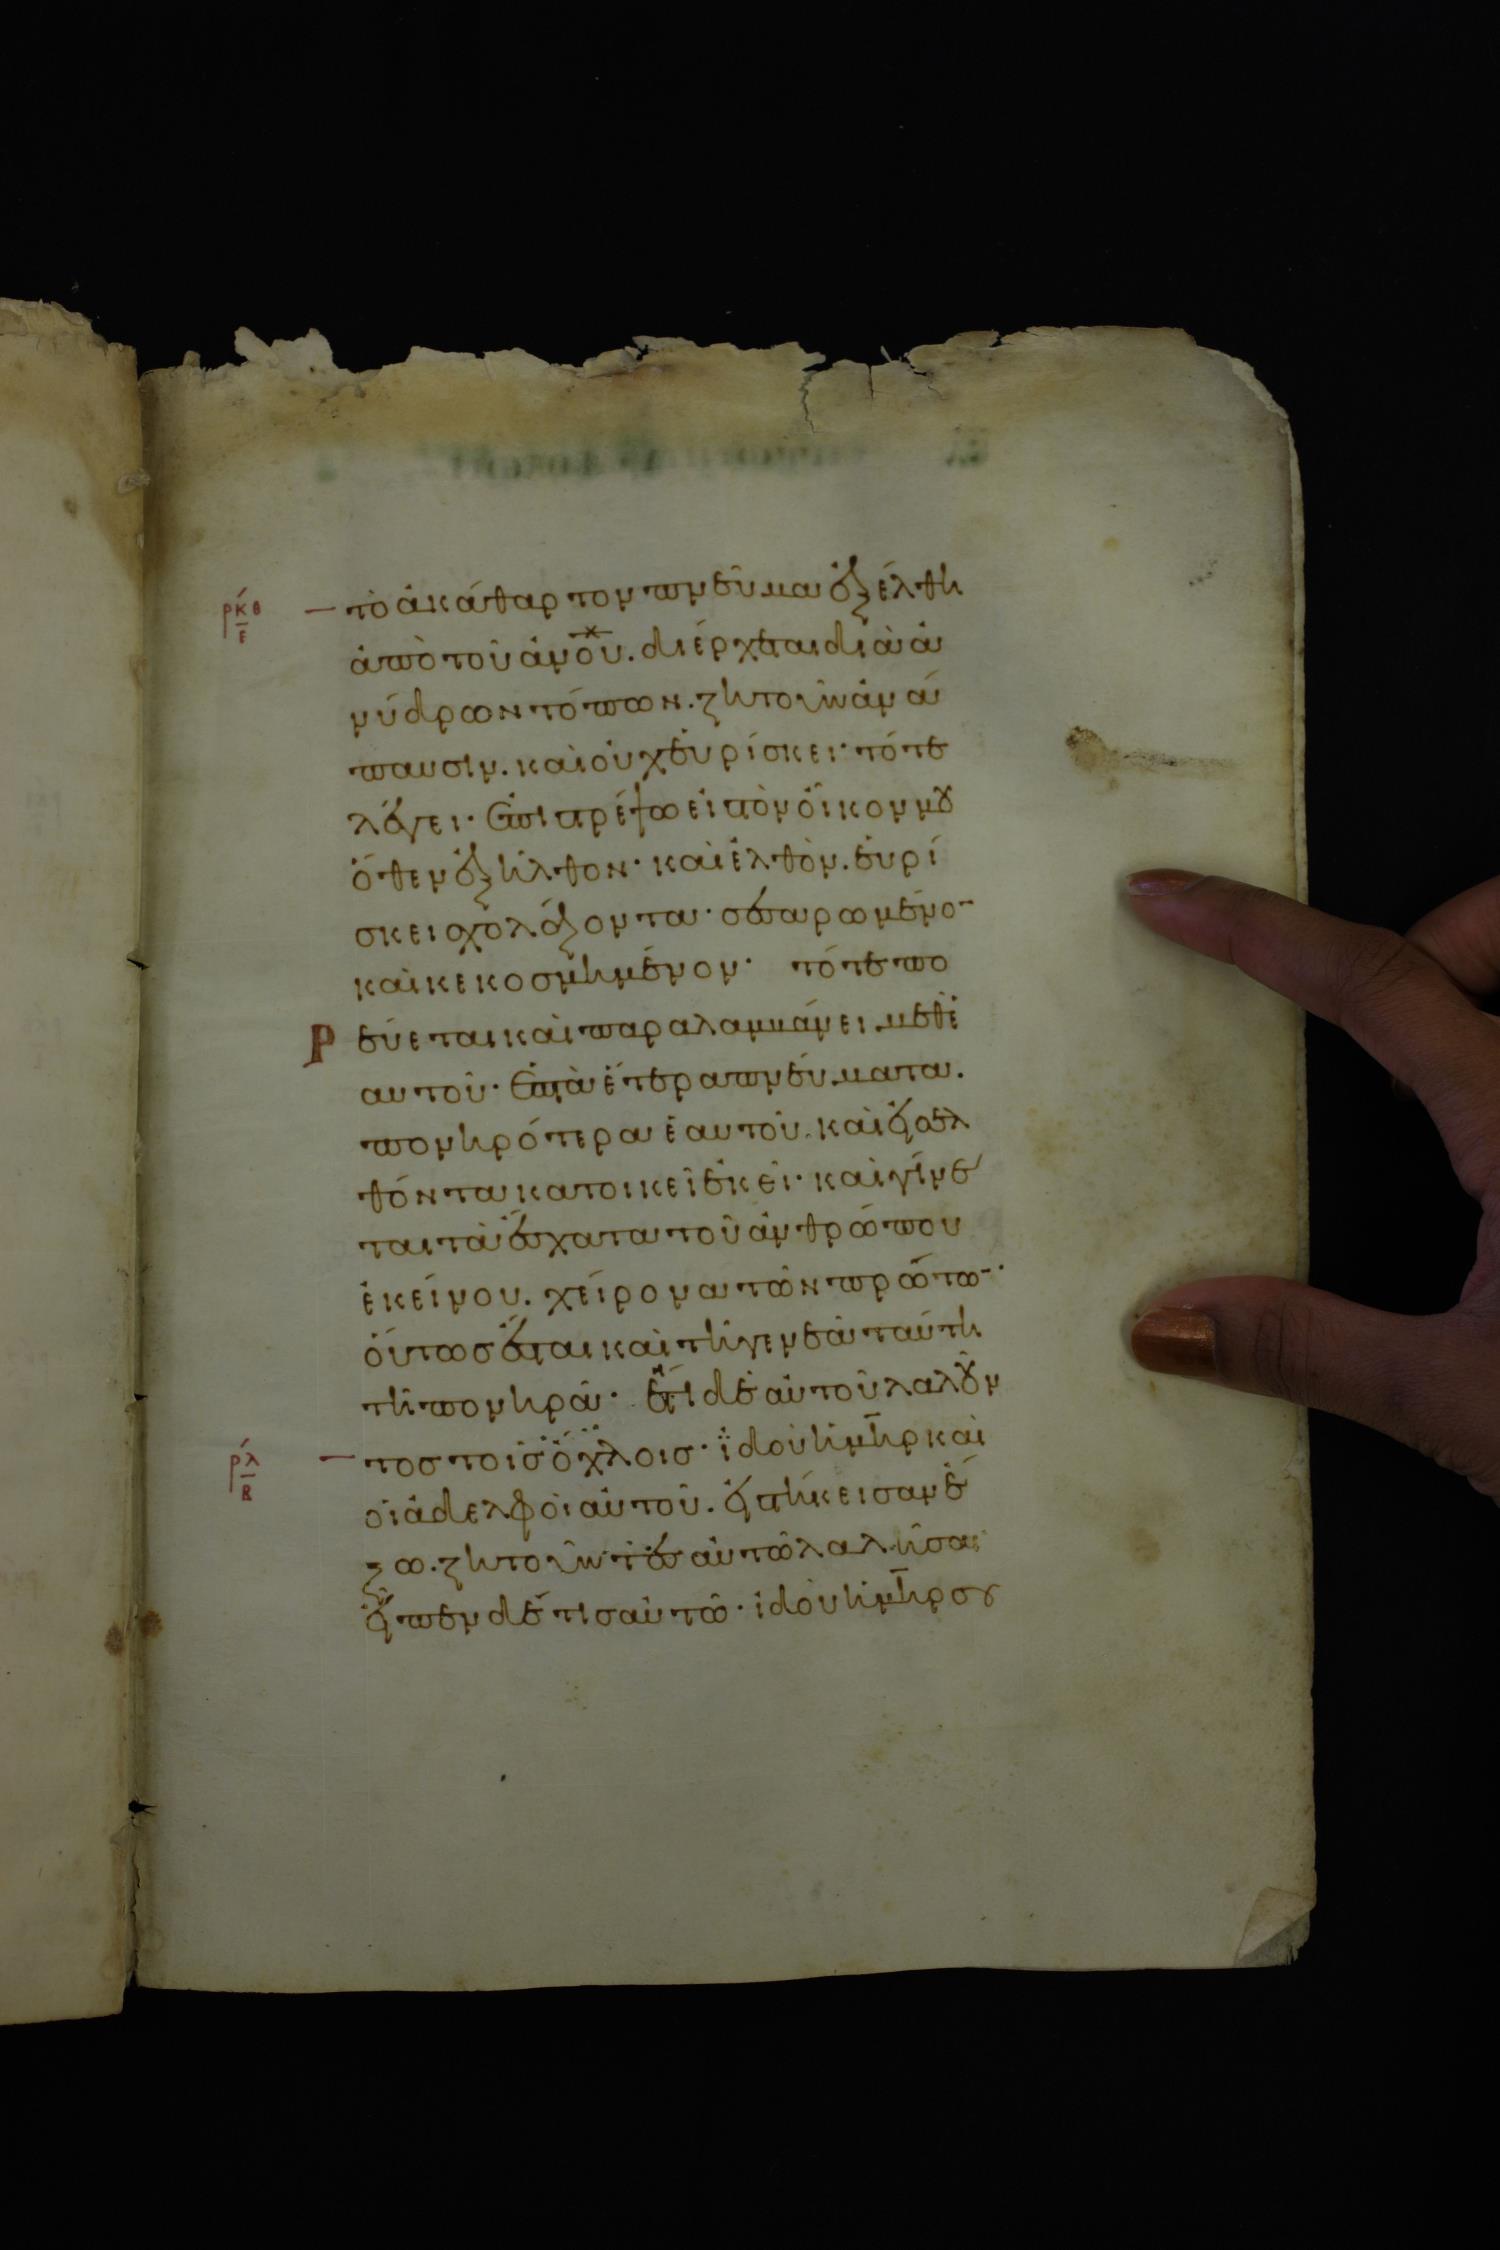 ρκθ
ε
τὸ ἀκάθαρτον πνεῦμα ἐξέλθη
ἀπὸ τοῦ ἀνου. διέρχεται δι ἀ
νύδρων τόπων. ζητοῦν ἀνά
παυσιν. καὶ οὐχ εὑρίσκει· τότε
λέγει· Ἐπιστρέψω εἰς τὸν οἶκον μου
ὅθεν ἐξῆλθον· καὶ ἐλθὸν. εὑρί
σκει σχολάζοντα· σεσαρωμένο
καὶ κεκοσμημένον· τότε πο
Ρ
εύεται καὶ παραλαμβάνει μεθ ἑ
αυτοῦ· Ἑπτὰ ἕτερα πνεύματα.
πονηρότερα ἑαυτοῦ. καὶ εἰσελ
θόντα κατοικεῖ ἐκεῖ· καὶ γίνε
ται τὰ ἔσχατα τοῦ ἀνθρώπου
ἐκείνου. χείρονα τῶν πρώτω·
οὕτωσ ἔσται καὶ τῆ γενεᾶ ταύτη
τῆ πονηρᾶ· Ἔτι δὲ αὐτοῦ λαλοῦν
ρλ
β
τοσ τοῖσ ὄχλοισ· ἰδοὺ ἡ μηρ καὶ
οἱ ἀδελφοὶ αὐτοῦ. εἱστήκεισαν ἔ
ζω. ζητοῦντεσ αὐτῶ λαλῆσαι
εἶπεν δέ τισ αὐτῶ· ἰδοὺ ἡ μηρ σου